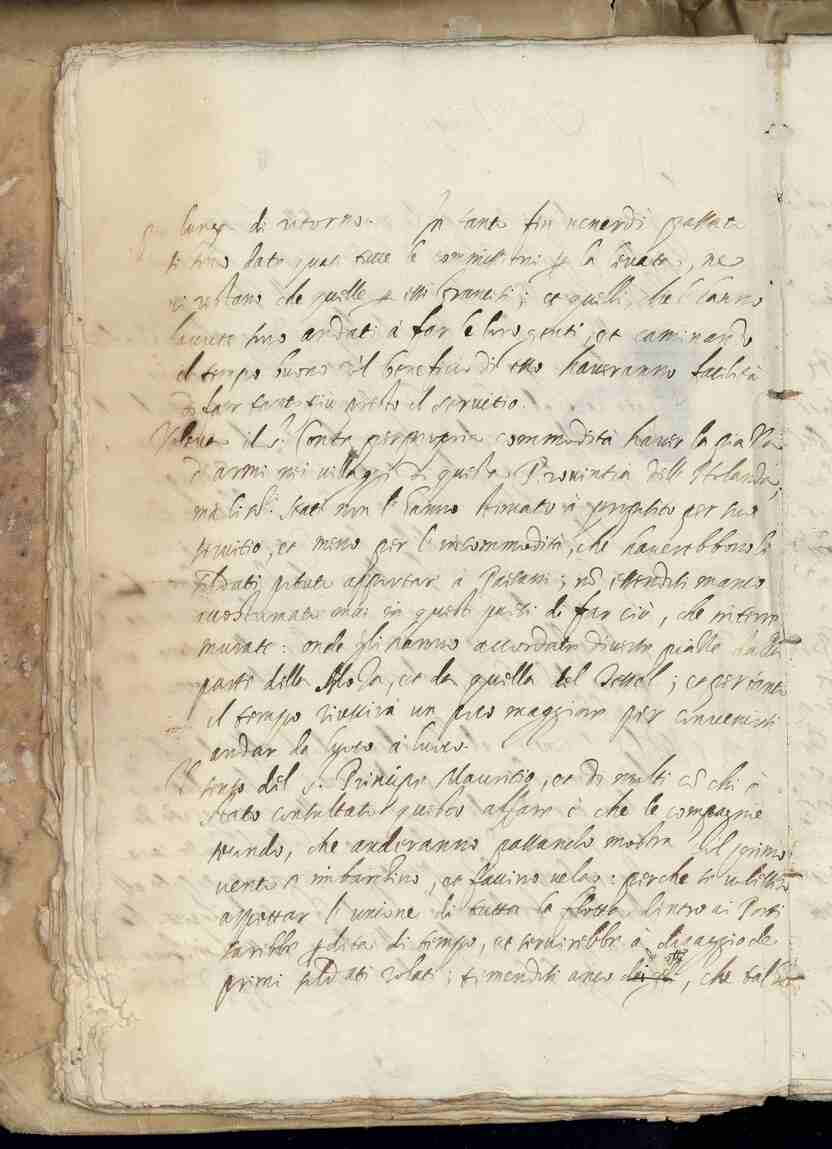 lungo di ritorno. In tanto fin venerdì passato
si sono date quasi tutte le commissioni per la levata, ne
vi restano che quelle per essi tenenti; et quelli, che l'hanno
havute sono andati à far le loro genti, et caminando
il tempo buono co'l beneficio di esso haveranno facilità
di far tanto più presto il servitio.
Voleva il s.r Conte per propria commodità haver la piazza
d'armi nei villaggi di questa Provintia dell'Holanda;
mà li ss.ri Stati non l'hanno stimato à proposito per suo
servitio, et meno per l'incommodità, che haverebbono li
soldati potuto apportar à Paesani; nō essendosi manco
accostumato mai in questi paesi di far ciò, che in terre
murate: onde gli hanno accordato diverse piazze dalla
parte della Mosa, et da quella del Tessel; et per tanto
il tempo riuscirà un poco maggiore per convenirsi
andar da luoco à luoco.
Il senso del s.r Principe Mauritio, et di molti cō chi è
stato consultato questo affare è che le compagnie
secondo, che anderanno passando mostra col primo
vento s'imbarchino, et faccino vela: perche se volessero
aspettar l'unione di tutta la flotta dentro ai Porti
sarebbe perdita di tempo, et servirebbe à disaggio de
primi soldati rolati; temendosi anco, che tal